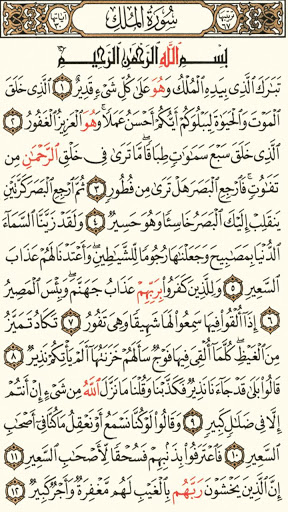 سُورَةُ الْمُلْكِ
بِسْمِ اللَّهِ الرَّحْمَٰنِ الرَّحِيمِ
تَبَارَكَ الَّذِي بِيَدِهِ الْمُلْكُ وَهُوَ عَلَىٰ كُلِّ شَيْءٍ قَدِيرٌ ١ الَّذِي خَلَقَ
الْمَوْتَ وَالْحَيَاةَ لِيَبْلُوَكُمْ أَيُّكُمْ أَحْسَنُ عَمَلًا ۚ وَهُوَ الْعَزِيزُ الْغَفُورُ ٢
الَّذِي خَلَقَ سَبْعَ سَمَاوَاتٍ طِبَاقًا ۖ مَا تَرَىٰ فِي خَلْقِ الرَّحْمَٰنِ مِن
تَفَاوُتٍ ۖ فَارْجِعِ الْبَصَرَ هَلْ تَرَىٰ مِن فُطُورٍ ٣ ثُمَّ ارْجِعِ الْبَصَرَ كَرَّتَيْنِ
يَنقَلِبْ إِلَيْكَ الْبَصَرُ خَاسِئًا وَهُوَ حَسِيرٌ ٤ وَلَقَدْ زَيَّنَّا السَّمَاءَ
الدُّنْيَا بِمَصَابِيحَ وَجَعَلْنَاهَا رُجُومًا لِّلشَّيَاطِينِ ۖ وَأَعْتَدْنَا لَهُمْ عَذَابَ
السَّعِيرِ ٥ وَلِلَّذِينَ كَفَرُوا بِرَبِّهِمْ عَذَابُ جَهَنَّمَ ۖ وَبِئْسَ الْمَصِيرُ
٦ إِذَا أُلْقُوا فِيهَا سَمِعُوا لَهَا شَهِيقًا وَهِيَ تَفُورُ ٧ تَكَادُ تَمَيَّزُ
مِنَ الْغَيْظِ ۖ كُلَّمَا أُلْقِيَ فِيهَا فَوْجٌ سَأَلَهُمْ خَزَنَتُهَا أَلَمْ يَأْتِكُمْ نَذِيرٌ ٨
قَالُوا بَلَىٰ قَدْ جَاءَنَا نَذِيرٌ فَكَذَّبْنَا وَقُلْنَا مَا نَزَّلَ اللَّهُ مِن شَيْءٍ إِنْ أَنتُمْ
إِلَّا فِي ضَلَالٍ كَبِيرٍ ٩ وَقَالُوا لَوْ كُنَّا نَسْمَعُ أَوْ نَعْقِلُ مَا كُنَّا فِي أَصْحَابِ
السَّعِيرِ ١٠ فَاعْتَرَفُوا بِذَنبِهِمْ فَسُحْقًا لِّأَصْحَابِ السَّعِيرِ ١١
إِنَّ الَّذِينَ يَخْشَوْنَ رَبَّهُم بِالْغَيْبِ لَهُم مَّغْفِرَةٌ وَأَجْرٌ كَبِيرٌ ١٢